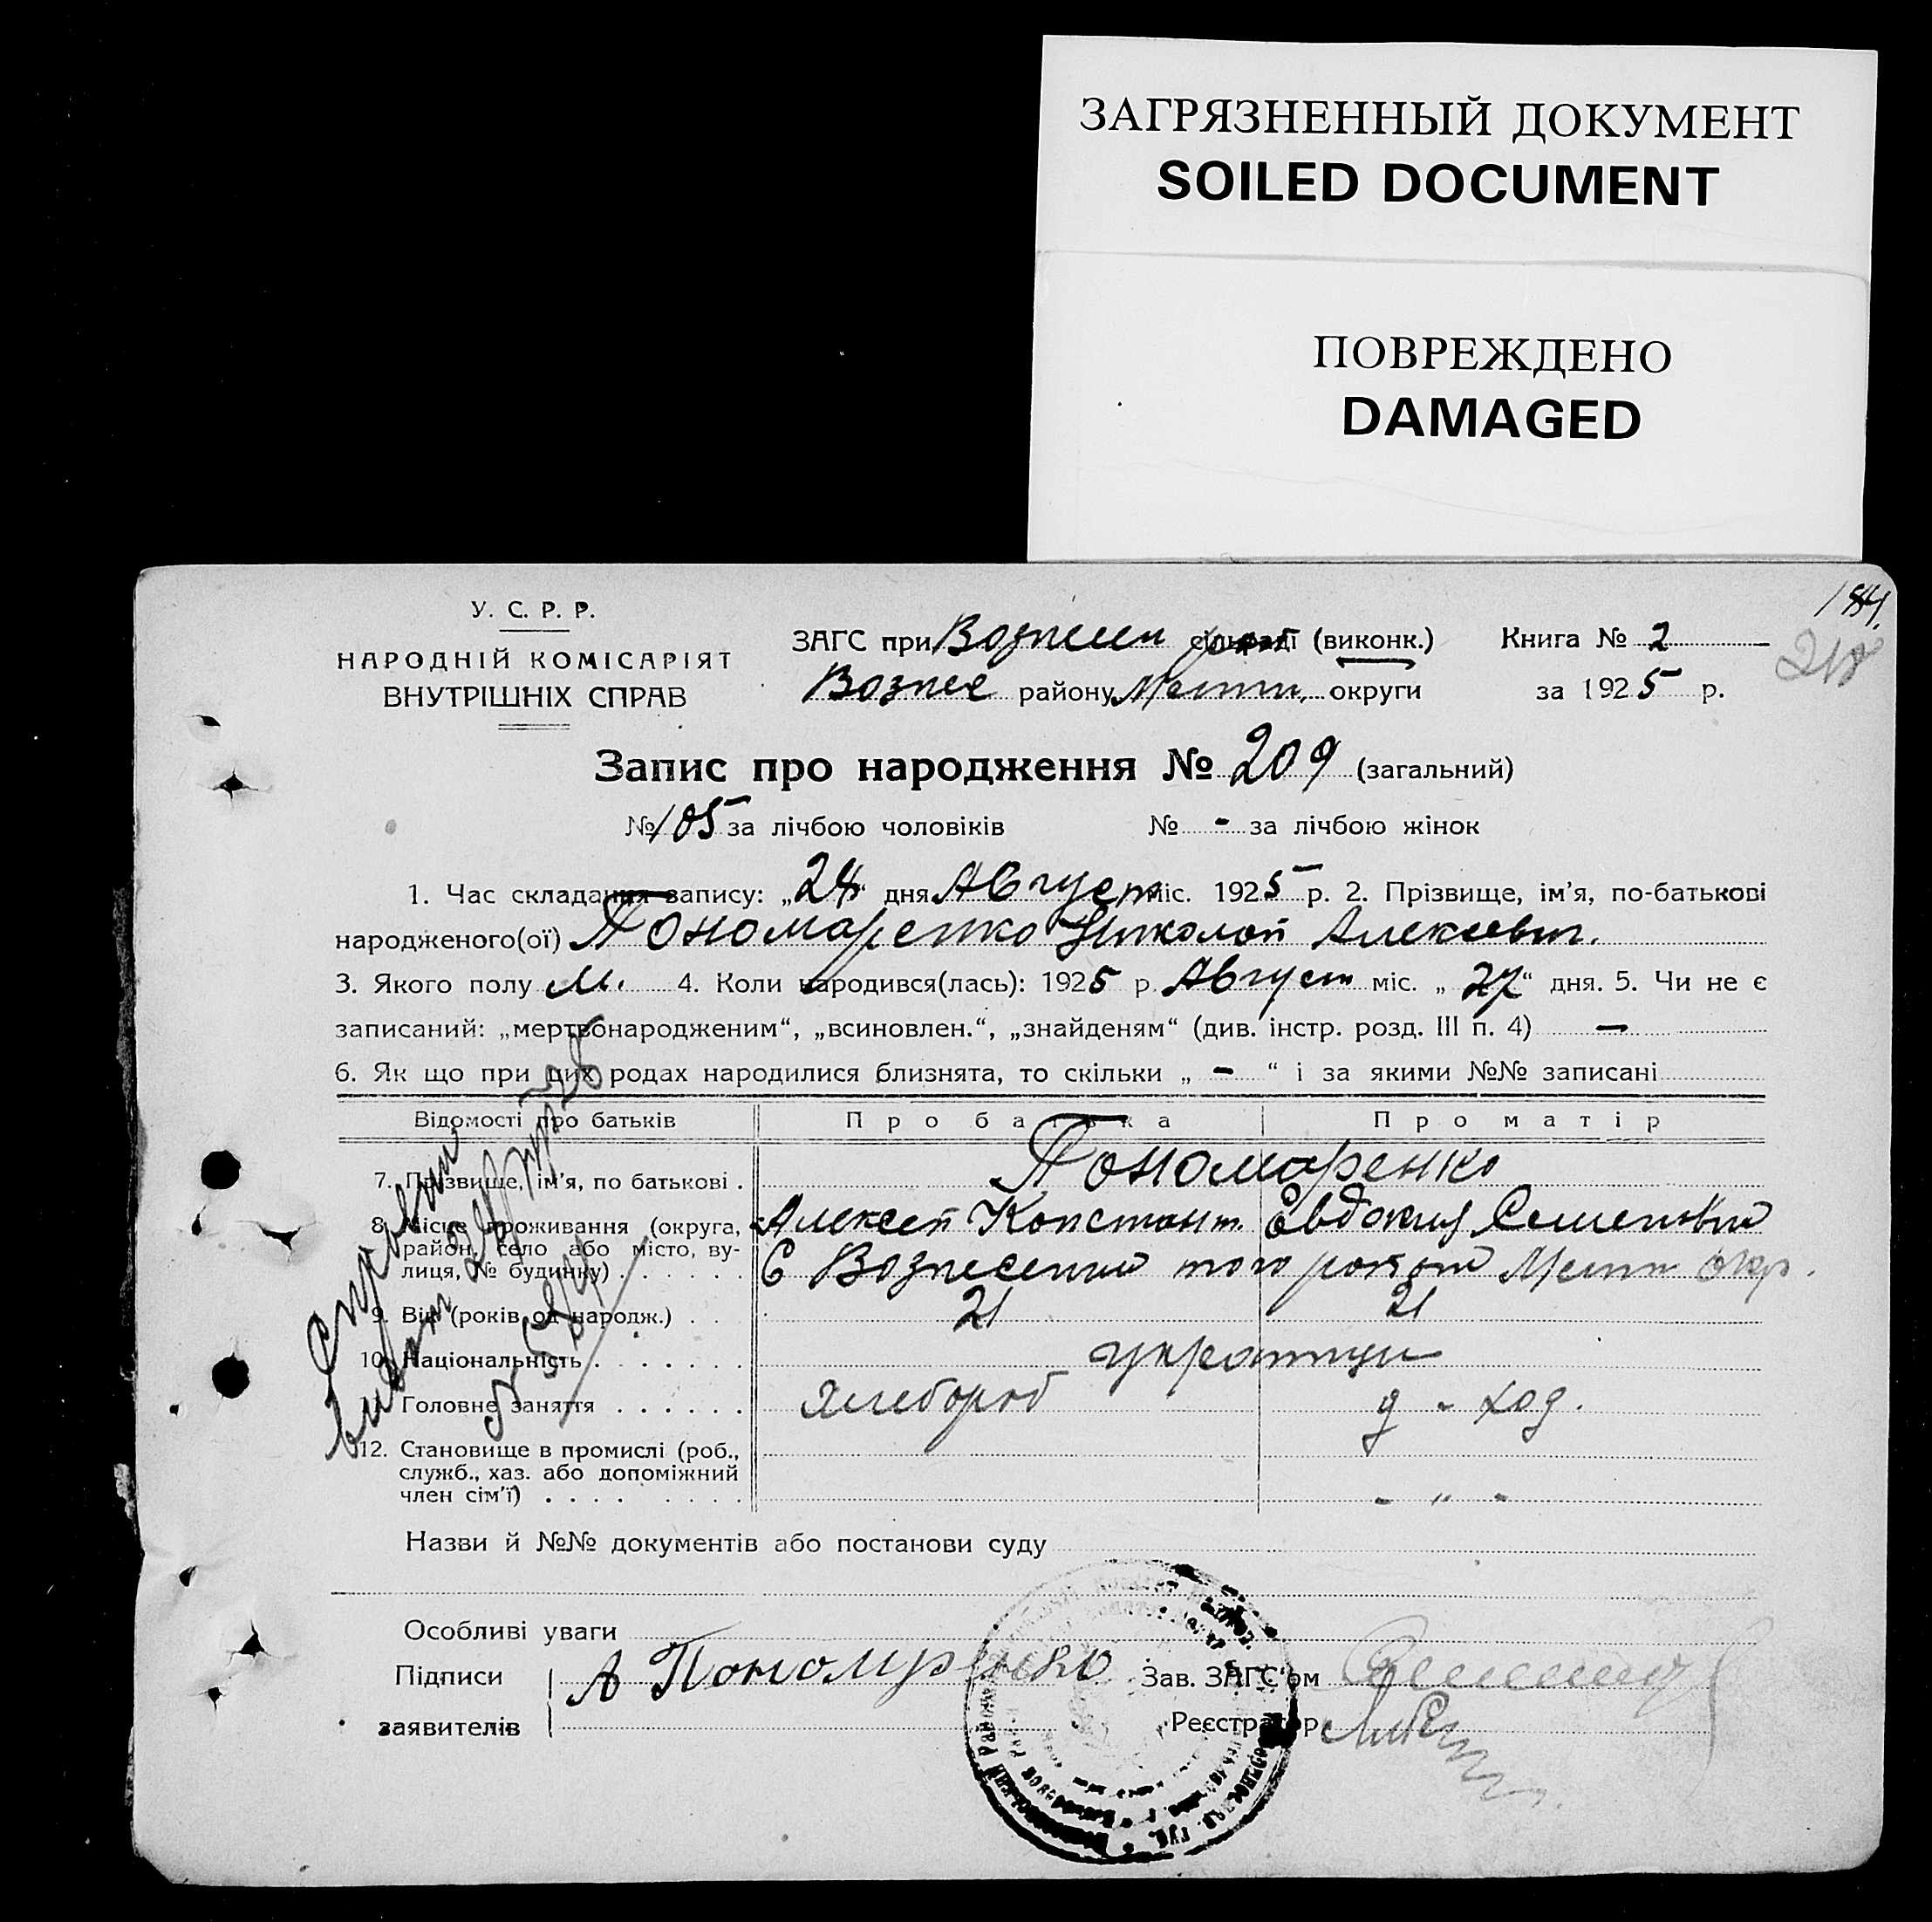 ЗАГРЯЗНЕННЫЙ ДОКУМЕНТ
SOILED DOCUMENT
ПОВРЕЖДЕНО
DAMAGED
У. С. Р. Р.
НАРОДНІЙ КОМІСАРІЯТ
ВНУТРІШНІХ СПРАВ
ЗАГС при Вознесен сільраді (виконк.) Книга № 2
Вознес району округи за 1925 р.
Запис про народження № 209 (загальний)
№ 105 за лічбою чоловіків № - за лічбою жінок
1. Час складання запису: „28“ дня Август міс. 1925 р. 2. Прізвище, ім’я, по-батькові
народженого(ої) Пономаренко Николай Алексеевич.
3. Якого полу М. 4. Коли народився(лась): 1925 р. Август міс. „27“ дня. 5. Чи не є
записаний: „мертвонародженим“, „всиновлен.“, „знайденям“ (див. інстр. розд. III п. 4) —
6. Як що при цих родах народилися близнята, то скільки „ - “ і за якими №№ записані
Відомості про батьків Про батька Про матір
7. Прізвище, ім’я, по батькові . Пономаренко
Алексей Констант. Евдокия Семеновна
8. Місце проживання (округа,
район, село або місто, ву-
лиця, № будинку) . . . . . . С Вознесенки того окр.
9. Вік (років од народж.) . . 21 21
10. Національність . . . . . . . украинцы
Головне заняття . . . . . . хлебороб д - хоз.
12. Становище в промислі (роб.,
служб., хаз. або допоміжний
член сім’ї) . . . . . . . . - " -
Назви й №№ документів або постанови суду
Особливі уваги
Підписи А Пономаренко Зав. ЗАГС‘ом
заявителів Реєстратор